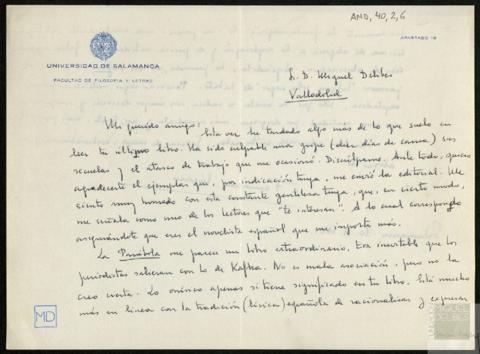 AMD, 40, 2, 6
APARTADO 19
UNIVERSIDAD DE SALAMANCA
FACULTAD DE FILOSOFIA Y LETRAS
S. D. Miguel Delibes
Valladolid
Mi querido amigo: Esta vez he tardado algo más de lo que suelo en
leer tu último libro. Ha sido culpable una gripe (diez días de cama) sus
secuelas y el atasco de trabajo que me ocasionó. Discúlpame. Ante todo, quiero
agradecerte el ejemplar que, por indicación tuya, me envió la editorial. Me
siento muy honrado con esta constante gentileza tuya, que, en cierto modo,
me señala como uno de los lectores que "te interesan". A lo cual correspondo
asegurándote que eres el novelista español que me importa más.
La Parábola me parece un libro extraordinario. Era inevitable que los
periodistas salieran con lo de Kafka. No es mala asociación, pero no la
creo cierta. Lo onírico apenas si tiene significado en tu libro. Está mucho
más en línea con la tradición (léxica) española de racionalizar y expresar
MD
MIGUEL
DELIBES